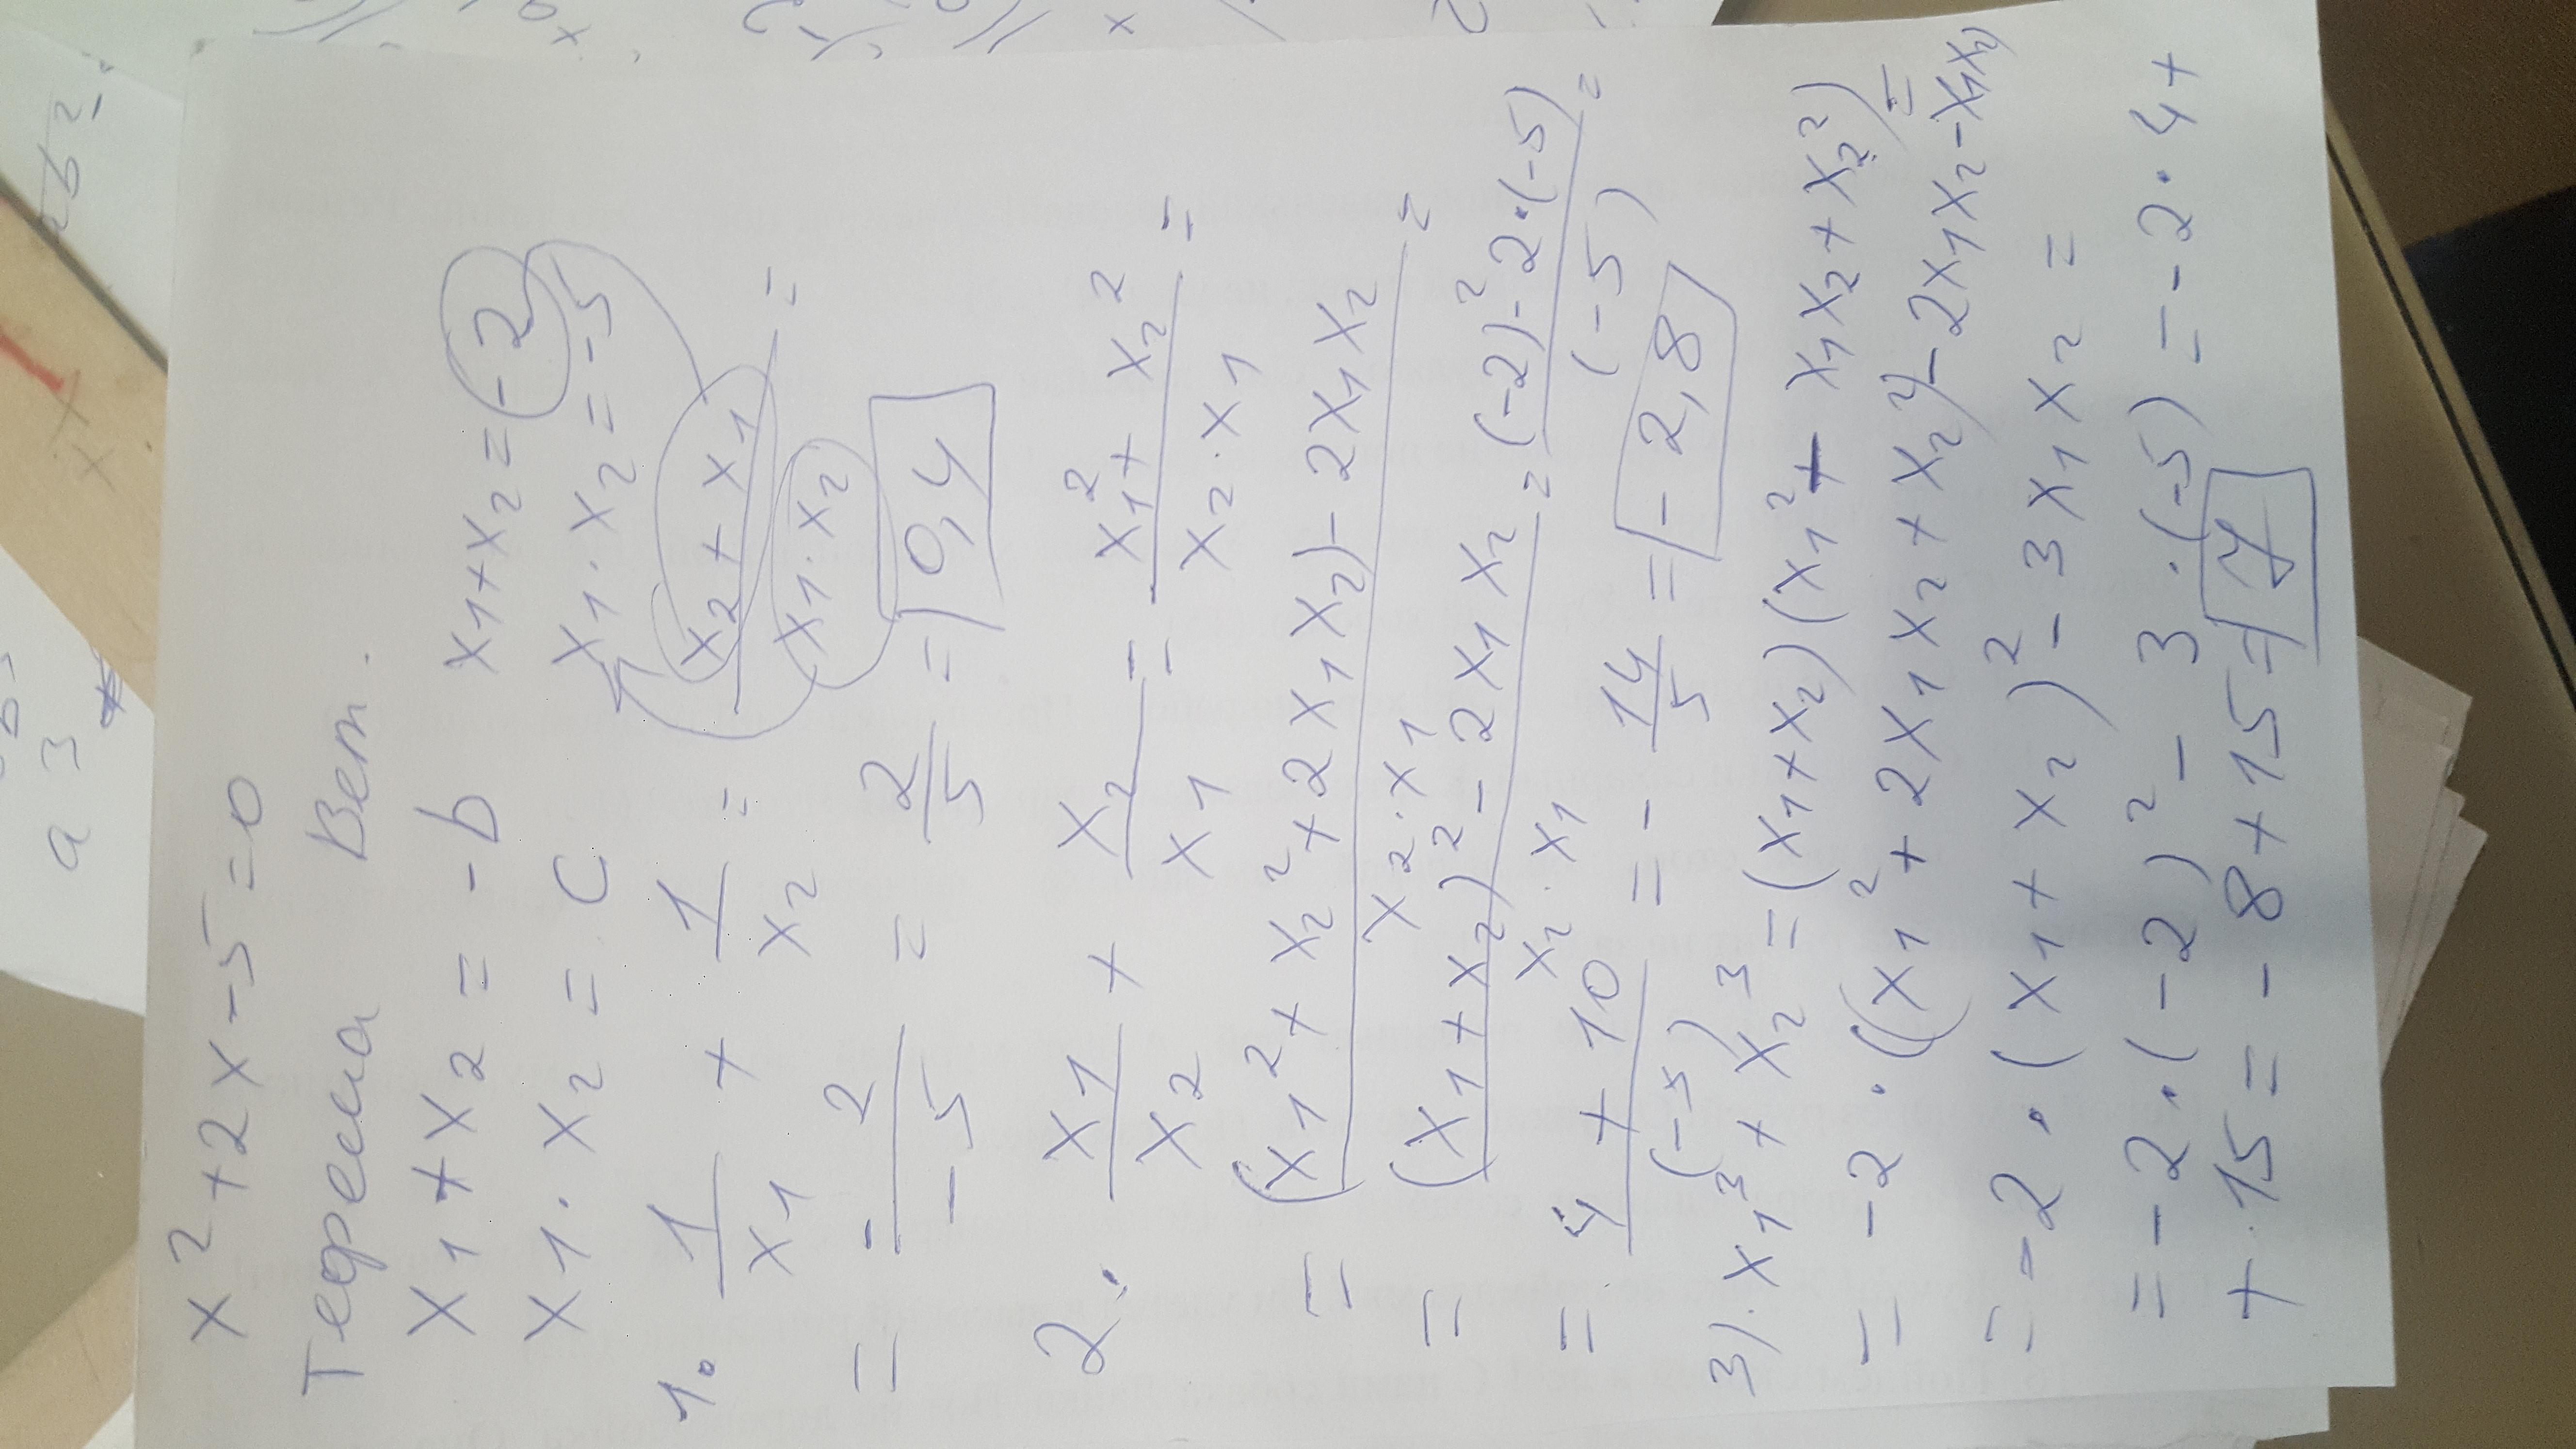 x² + 2x - 5 = 0
Теорема Вет.
x₁ + x₂ = -b    x₁ + x₂ = -2
x₁ · x₂ = c    x₁ · x₂ = -5
1. 1/x₁ + 1/x₂ = (x₂ + x₁)/(x₁ · x₂) =
= -2/-5 = 2/5 = 0,4
2. x₁/x₂ + x₂/x₁ = (x₁² + x₂²)/(x₂ · x₁) =
= (x₁² + x₂² + 2x₁x₂) - 2x₁x₂/(x₂ · x₁) =
= (x₁ + x₂)² - 2x₁x₂/(x₂ · x₁) = (-2)² - 2·(-5)/(-5) =
= 4 + 10/(-5) = - 14/5 = -2,8
3). x₁³ + x₂³ = (x₁ + x₂)(x₁² + x₁x₂ + x₂²) =
= -2 · ((x₁² + 2x₁x₂ + x₂²) - 2x₁x₂ - x₁x₂)
= -2 · (x₁ + x₂)² - 3x₁x₂ =
= -2 · (-2)² - 3 · (-5) = -2 · 4 +
+ 15 = -8 + 15 = 7